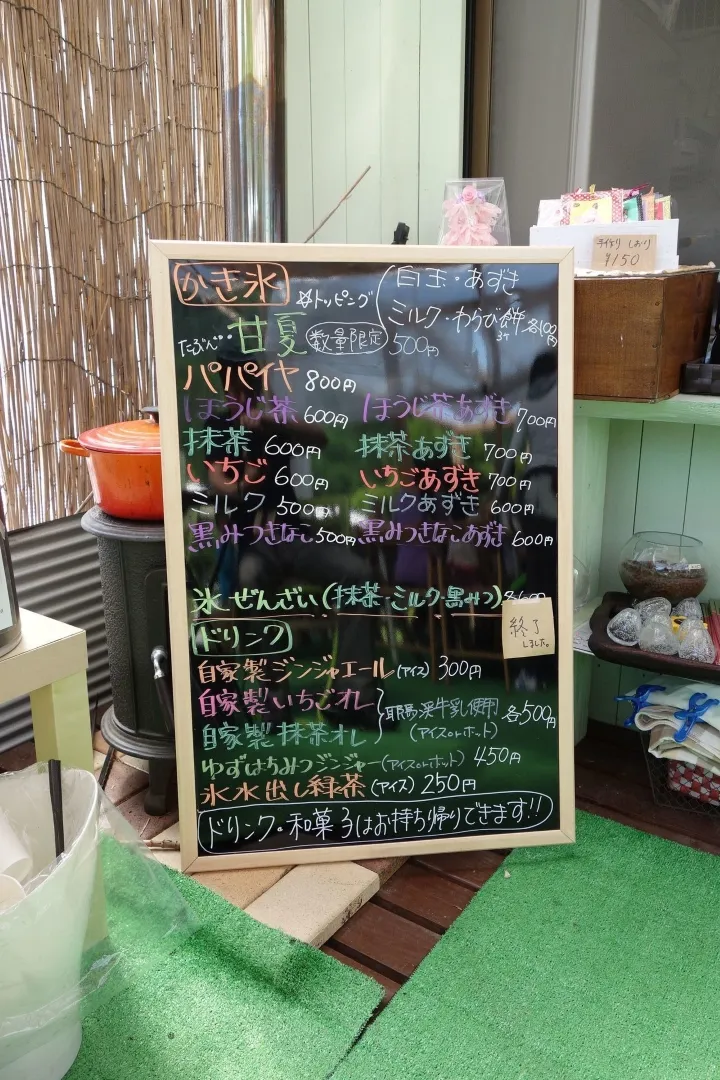 手作り しおり
¥150
かき氷
☆トッピング
白玉・あずき
ミルク・わらび餅 各100円
3ケ
たぶん・・甘夏 数量限定 500円
パパイヤ 800円
ほうじ茶 600円 ほうじ茶あずき 700円
抹茶 600円 抹茶あずき 700円
いちご 600円 いちごあずき 700円
ミルク 500円 ミルクあずき 600円
黒みつきなこ 500円 黒みつきなこあずき 600円
氷ぜんざい(抹茶・ミルク・黒みつ)各600
終了
しました。
ドリンク
自家製ジンジャエール(アイス) 300円
自家製いちごオレ
自家製抹茶オレ
耶馬渓牛乳使用 各500円
(アイスorホット)
ゆずはちみつジンジャー(アイスorホット) 450円
氷水出し緑茶(アイス) 250円
ドリンク・和菓子はお持ち帰りできます!!